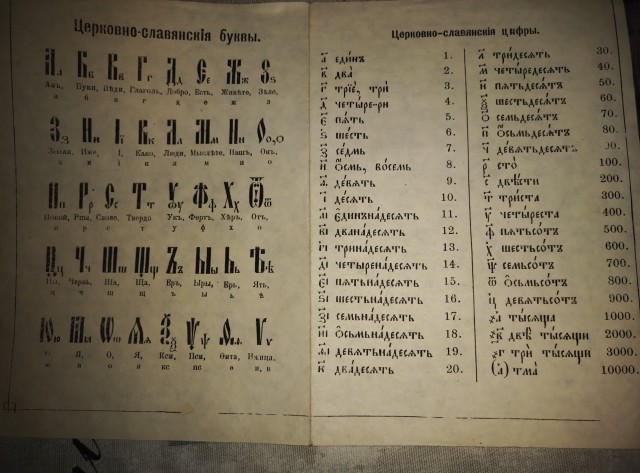 Церковно-славянскія буквы.
Аа Бб Вв Гг Дд Єє Жж Ѕѕ
Азъ, Буки, Вѣди, Глаголь, Добро, Есть, Живѣте, Зѣло,
а б в г д е ж з
Зз Ии Її Кк Лл Мм Нн Оо,о
Земля, Иже, І, Како, Люди, Мыслѣте, Нашъ, Онъ,
з и і к л м н о
Пп Рр Сс Тт Уу Фф Хх Ѿѿ
Покой, Рцы, Слово, Твердо Укъ, Фертъ, Хѣръ, Отъ,
п р с т у ф х о
Цц Чч Шш Щщ Ъъ Ыы Ьь Ѣѣ
Цы, Червь, Ша, Ща, Еръ, Еры, Ерь, Ять,
ц ч ш щ ъ ы ь ѣ
Юю Ѩ Ѡѡ Ѧѧ Ѯѯ Ѱѱ Ѳѳ Ѵѵ
Ю, Я, О, Я, Кси, Пси, Ѳита, Ижица,
ю я о я кс пс ѳ и, в
Церковно-славянскія цифры.
а҃ еди́нъ 1.
в҃ два̀ 2.
г҃ трїѐ, трѝ 3.
д҃ четы́ре-ри 4.
є҃ пѧ́ть 5.
ѕ҃ ше́сть 6.
з҃ се́дмь 7.
и҃ ѻ́смь, во́семь 8.
ѳ҃ де́вѧть 9.
і҃ де́сѧть 10.
аі҃ єди́ннадесѧть 11.
ві҃ двана́десѧть 12.
гі҃ трина́десѧть 13.
ді҃ четырена́десѧть 14.
єі҃ пѧтьна́десѧть 15.
ѕі҃ шестьна́десѧть 16.
зі҃ седмьна́десѧть 17.
иі҃ ѻсмьна́десѧть 18.
ѳі҃ девѧтьна́десѧть 19.
к҃ два́десѧть 20.
л҃ три́десѧть 30.
м҃ четы́редесѧть 40.
н҃ пѧтьдесѧ́тъ 50.
ѯ҃ шестьдесѧ́тъ 60.
ѻ҃ семьдесѧ́тъ 70.
п҃ ѻсмьдесѧ́тъ 80.
ч҃ девѧтьдесѧ́тъ 90.
р҃ сто̀ 100.
с҃ двѣ́сти 200.
т҃ три́ста 300.
у҃ четы́реста 400.
ф҃ пѧтьсо́тъ 500.
х҃ шестьсо́тъ 600.
ѱ҃ семьсо́тъ 700.
ѿ҃ ѻсмьсо́тъ 800.
ц҃ девѧтьсо́тъ 900.
҂а҃ ты́сѧща 1000.
҂в҃ двѣ̀ ты́сѧщи 2000.
҂г҃ трѝ ты́сѧщи 3000.
(а) тма̀ 10000.